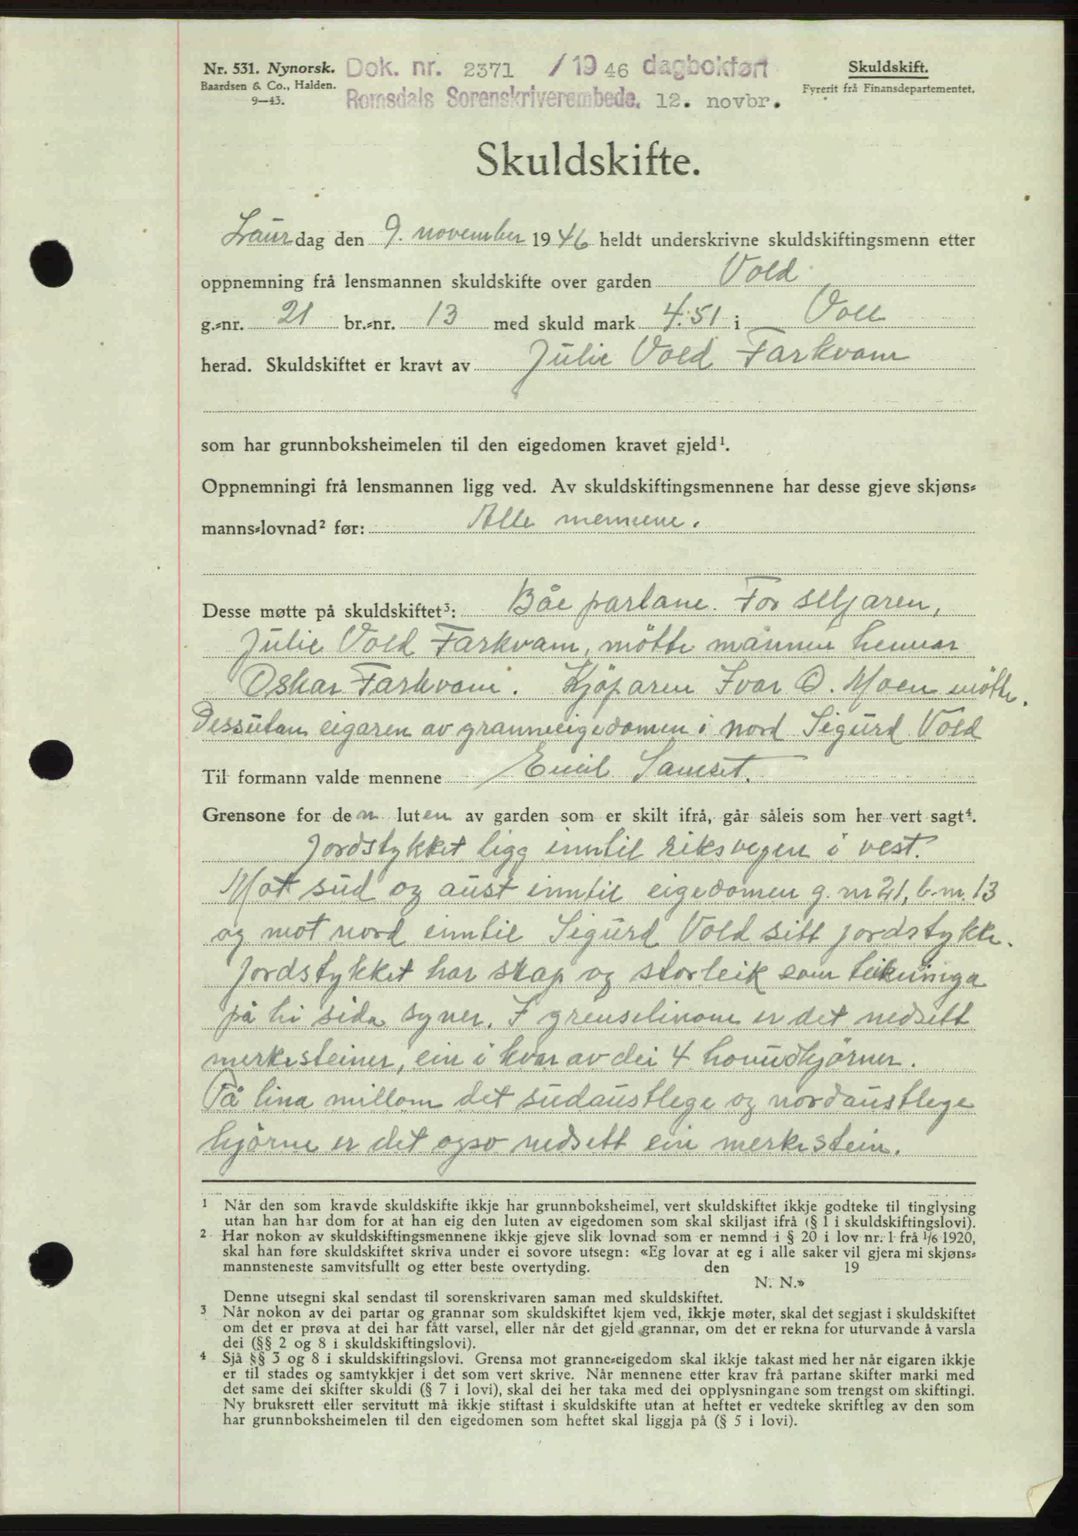 Nr. 531. Nynorsk.
Baardsen & Co., Halden.
9—43.
Dok. nr. 2371 /19 46 dagbokført
Romsdals Sorenskriverembede. 12. novbr.
Skuldskift.
Fyrerit frå Finansdepartementet.
Skuldskifte.
Laur dag den 9. november 1946 heldt underskrivne skuldskiftingsmenn etter
oppnemning frå lensmannen skuldskifte over garden Vold
g.-nr. 21 br.-nr. 13 med skuld mark 4.51 i Voll
herad. Skuldskiftet er kravt av Julie Vold Farkvam
som har grunnboksheimelen til den eigedomen kravet gjeld¹.
Oppnemningi frå lensmannen ligg ved. Av skuldskiftingsmennene har desse gjeve skjøns-
manns-lovnad² før: Alle mennene.
Desse møtte på skuldskiftet³: Båe partane. For seljaren,
Julie Vold Farkvam, møtte mannen hennar
Oskar Farkvam. Kjøparen Ivar O. Moen møtte.
Dessutan eigaren av granneeigedomen i nord Sigurd Vold
Til formann valde mennene Emil Samset.
Grensone for den luten av garden som er skilt ifrå, går såleis som her vert sagt⁴.
Jordstykket ligg inntil riksvegen i vest.
Mot sud og aust inntil eigedomen g. nr 21, b. nr. 13
og mot nord inntil Sigurd Vold sitt jordstykke.
Jordstykket har skap og storleik som teikninga
på hi sida syner. I grenselinom er det nedsett
merkesteiner, ein i kvar av dei 4 hovudhjørner.
På lina millom det sudaustlege og nordaustlege
hjørne er det ogso nedsett ein merkestein.
¹ Når den som kravde skuldskifte ikkje har grunnboksheimel, vert skuldskiftet ikkje godteke til tinglysing
utan han har dom for at han eig den luten av eigedomen som skal skiljast ifrå (§ 1 i skuldskiftingslovi).
² Har nokon av skuldskiftingsmennene ikkje gjeve slik lovnad som er nemnd i § 20 i lov nr. 1 frå 1/6 1920,
skal han føre skuldskiftet skriva under ei sovore utsegn: «Eg lovar at eg i alle saker vil gjera mi skjøns-
mannsteneste samvitsfullt og etter beste overtyding. den 19
N. N.»
Denne utsegni skal sendast til sorenskrivaren saman med skuldskiftet.
³ Når nokon av dei partar og grannar som skuldskiftet kjem ved, ikkje møter, skal det segjast i skuldskiftet
om det er prøva at dei har fått varsel, eller når det gjeld grannar, om det er rekna for uturvande å varsla
dei (§§ 2 og 8 i skuldskiftingslovi).
⁴ Sjå §§ 3 og 8 i skuldskiftingslovi. Grensa mot granne-eigedom skal ikkje takast med her når eigaren ikkje
er til stades og samtykkjer i det som vert skrive. Når mennene etter krav frå partane skifter marki med
det same dei skifter skuldi (§ 7 i lovi), skal dei her taka med dei opplysningane som trengst om skiftingi.
Ny bruksrett eller servitutt må ikkje stiftast i skuldskifte utan at heftet er vedteke skriftleg av den som
har grunnboksheimelen til den eigedomen som heftet skal liggja på (§ 5 i lovi).